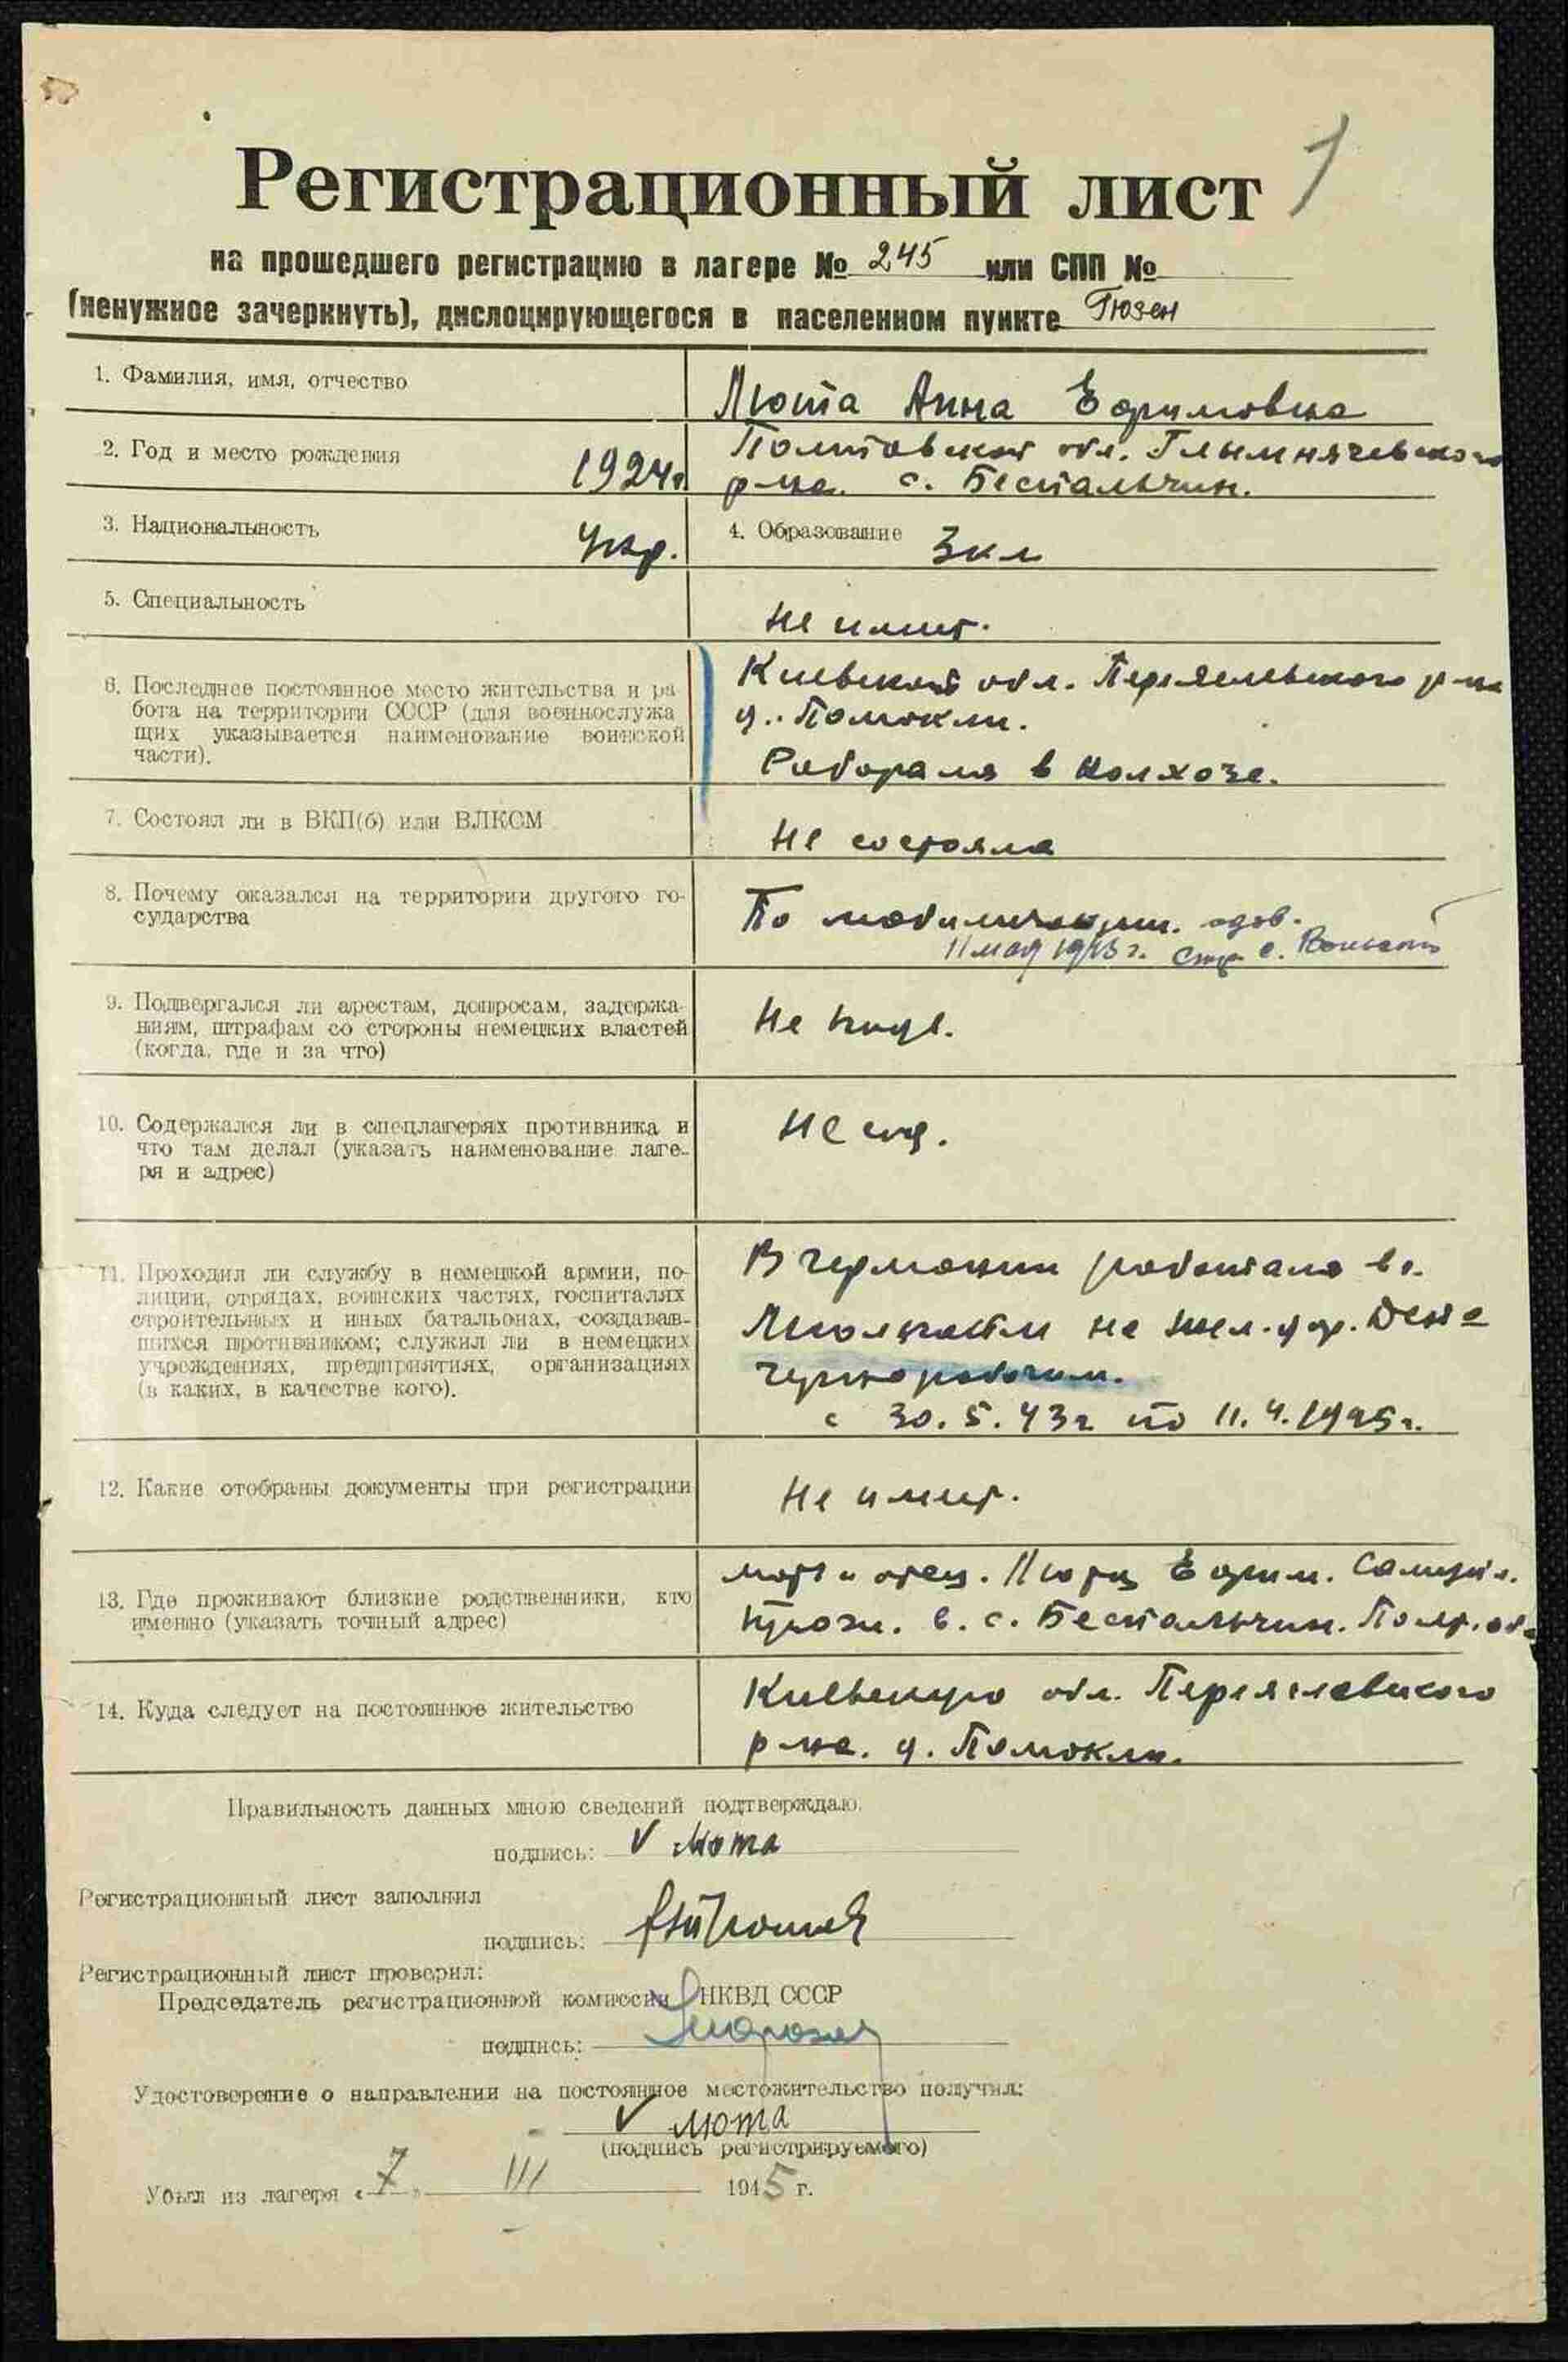 1
Регистрационный лист
на прошедшего регистрацию в лагере № 245 или СПП №
(ненужное зачеркнуть), дислоцирующегося в населенном пункте Гюзен
1. Фамилия, имя, отчество
Люта Анна Ефимовна
2. Год и место рождения 1924г
Полтавской обл. Глымнячевского
р-на. с. Беспальчин.
3. Национальность Укр.
4. Образование 3кл
5. Специальность
Не имеет.
6. Последнее постоянное место жительства и ра
бота на территории СССР (для военнослужа
щих указывается наименование воинской
части).
Киевской обл. Переяславского р-на
д. Помокли.
Работала в колхозе.
7. Состоял ли в ВКП(б) или ВЛКСМ
Не состояла
8. Почему оказался на территории другого го-
сударства
По мобилизации.
11 мая 1943 г. с.
9. Подвергался ли арестам, допросам, задержа-
ниям, штрафам со стороны немецких властей
(когда, где и за что)
Не подв.
10. Содержался ли в спецлагерях противника и
что там делал (указать наименование лаге-
ря и адрес)
Не сод.
11. Проходил ли службу в немецкой армии, по-
лиции, отрядах, воинских частях, госпиталях
строительных и иных батальонах, создавав-
шихся противником; служил ли в немецких
учреждениях, предприятиях, организациях
(в каких, в качестве кого).
В германии работала в г.
на жел. дор.
чернорабочим.
с 30.5.43г по 11.4.1945г.
12. Какие отобраны документы при регистрации
Не имеет.
13. Где проживают близкие родственники, кто
именно (указать точный адрес)
мать и отец. Люта Ефим. Самуил.
прож. в. с. Беспальчин. Полт. обл
14. Куда следует на постоянное жительство
Киевскую обл. Переяславского
р-на. д. Помокли.
Правильность данных мною сведений подтверждаю.
подпись: V Люта
Регистрационный лист заполнил
подпись:
Регистрационный лист проверил:
Председатель регистрационной комиссии НКВД СССР
подпись:
Удостоверение о направлении на постоянное местожительство получил:
V Люта
(подпись регистрируемого)
Убыл из лагеря «7» III 1945 г.